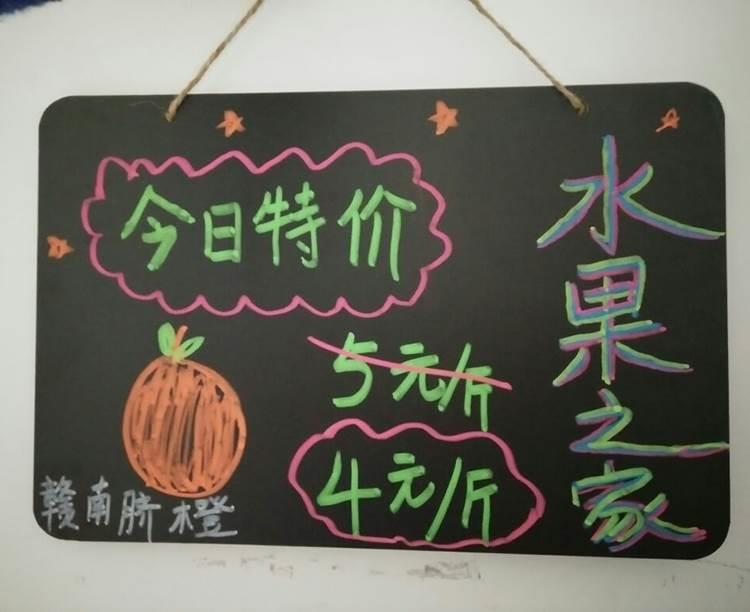 今日特价
5元/斤
4元/斤
赣南脐橙
水果之家